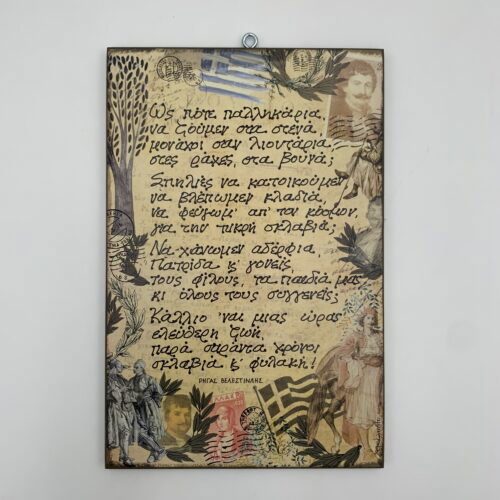 Ως πότε παλληκάρια,
να ζούμεν στα στενά,
μονάχοι σαν λιοντάρια,
στες ράχες, στα βουνά;
Σπηλιές να κατοικούμεν,
να βλέπωμεν κλαδιά,
να φεύγωμ' απ' τον κόσμον,
για την πικρή σκλαβιά;
Να χάνωμεν αδέρφια,
Πατρίδα κ' γονείς,
τους φίλους, τα παιδιά μας
κι όλους τους συγγενείς;
Κάλλιο 'ναι μιας ώρας
ελεύθερη ζωή,
παρά σαράντα χρόνοι
σκλαβιά κ' φυλακή!
ΡΗΓΑΣ ΒΕΛΕΣΤΙΝΛΗΣ